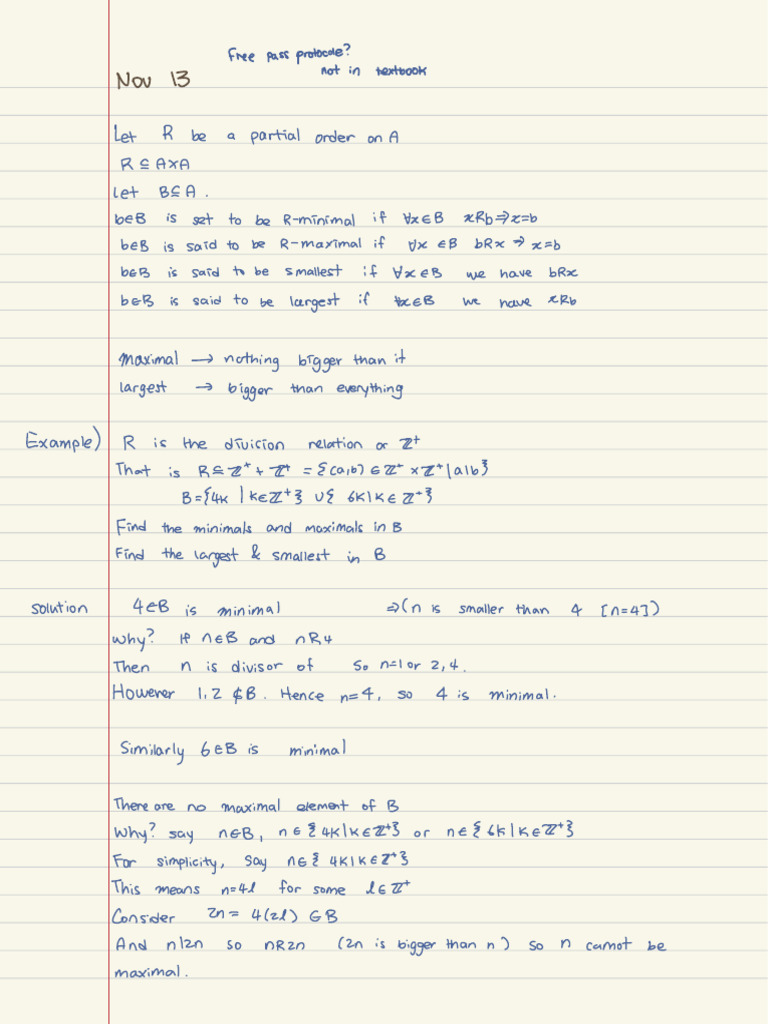 Free pass protocole?
not in textbook
Nov 13
Let R be a partial order on A
R ⊆ A×A
Let B⊆A.
b∈B is set to be R-minimal if ∀x∈B xRb⇒x=b
b∈B is said to be R-maximal if ∀x ∈B bRx ⇒ x=b
b∈B is said to be smallest if ∀x∈B we have bRx
b∈B is said to be largest if ∀x∈B we have xRb
maximal → nothing bigger than it
largest → bigger than everything
Example) R is the division relation or ℤ⁺
That is R⊆ℤ⁺ + ℤ⁺ = {(a,b) ∈ℤ⁺ ×ℤ⁺|a|b}
B={4k |k∈ℤ⁺} ∪{ 6k|k∈ℤ⁺}
Find the minimals and maximals in B
Find the largest & smallest in B
solution 4∈B is minimal ⇒(n is smaller than 4 [n=4])
Why? If n∈B and nR4
Then n is divisor of so n=1 or 2,4.
However 1,2 ∉B. Hence n=4, so 4 is minimal.
Similarly 6∈B is minimal
There are no maximal element of B
Why? say n∈B, n∈{4k|k∈ℤ⁺} or n∈{6k|k∈ℤ⁺}
For simplicity, Say n∈{ 4k|k∈ℤ⁺}
This means n=4l for some l∈ℤ⁺
Consider 2n= 4(2l) ∈B
And n|2n so nR2n (2n is bigger than n) so n cannot be
maximal.